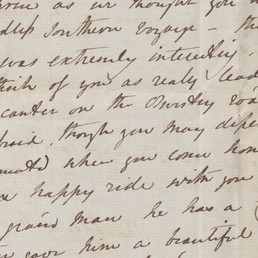 as we thought you
Southern voyage - th
was extremely interesting.
think of you as really lead
canter on the Burnley roa
afraid, though you may depe
mate) when you come hom
a happy ride with you
grand man he has a
gave him a beautiful